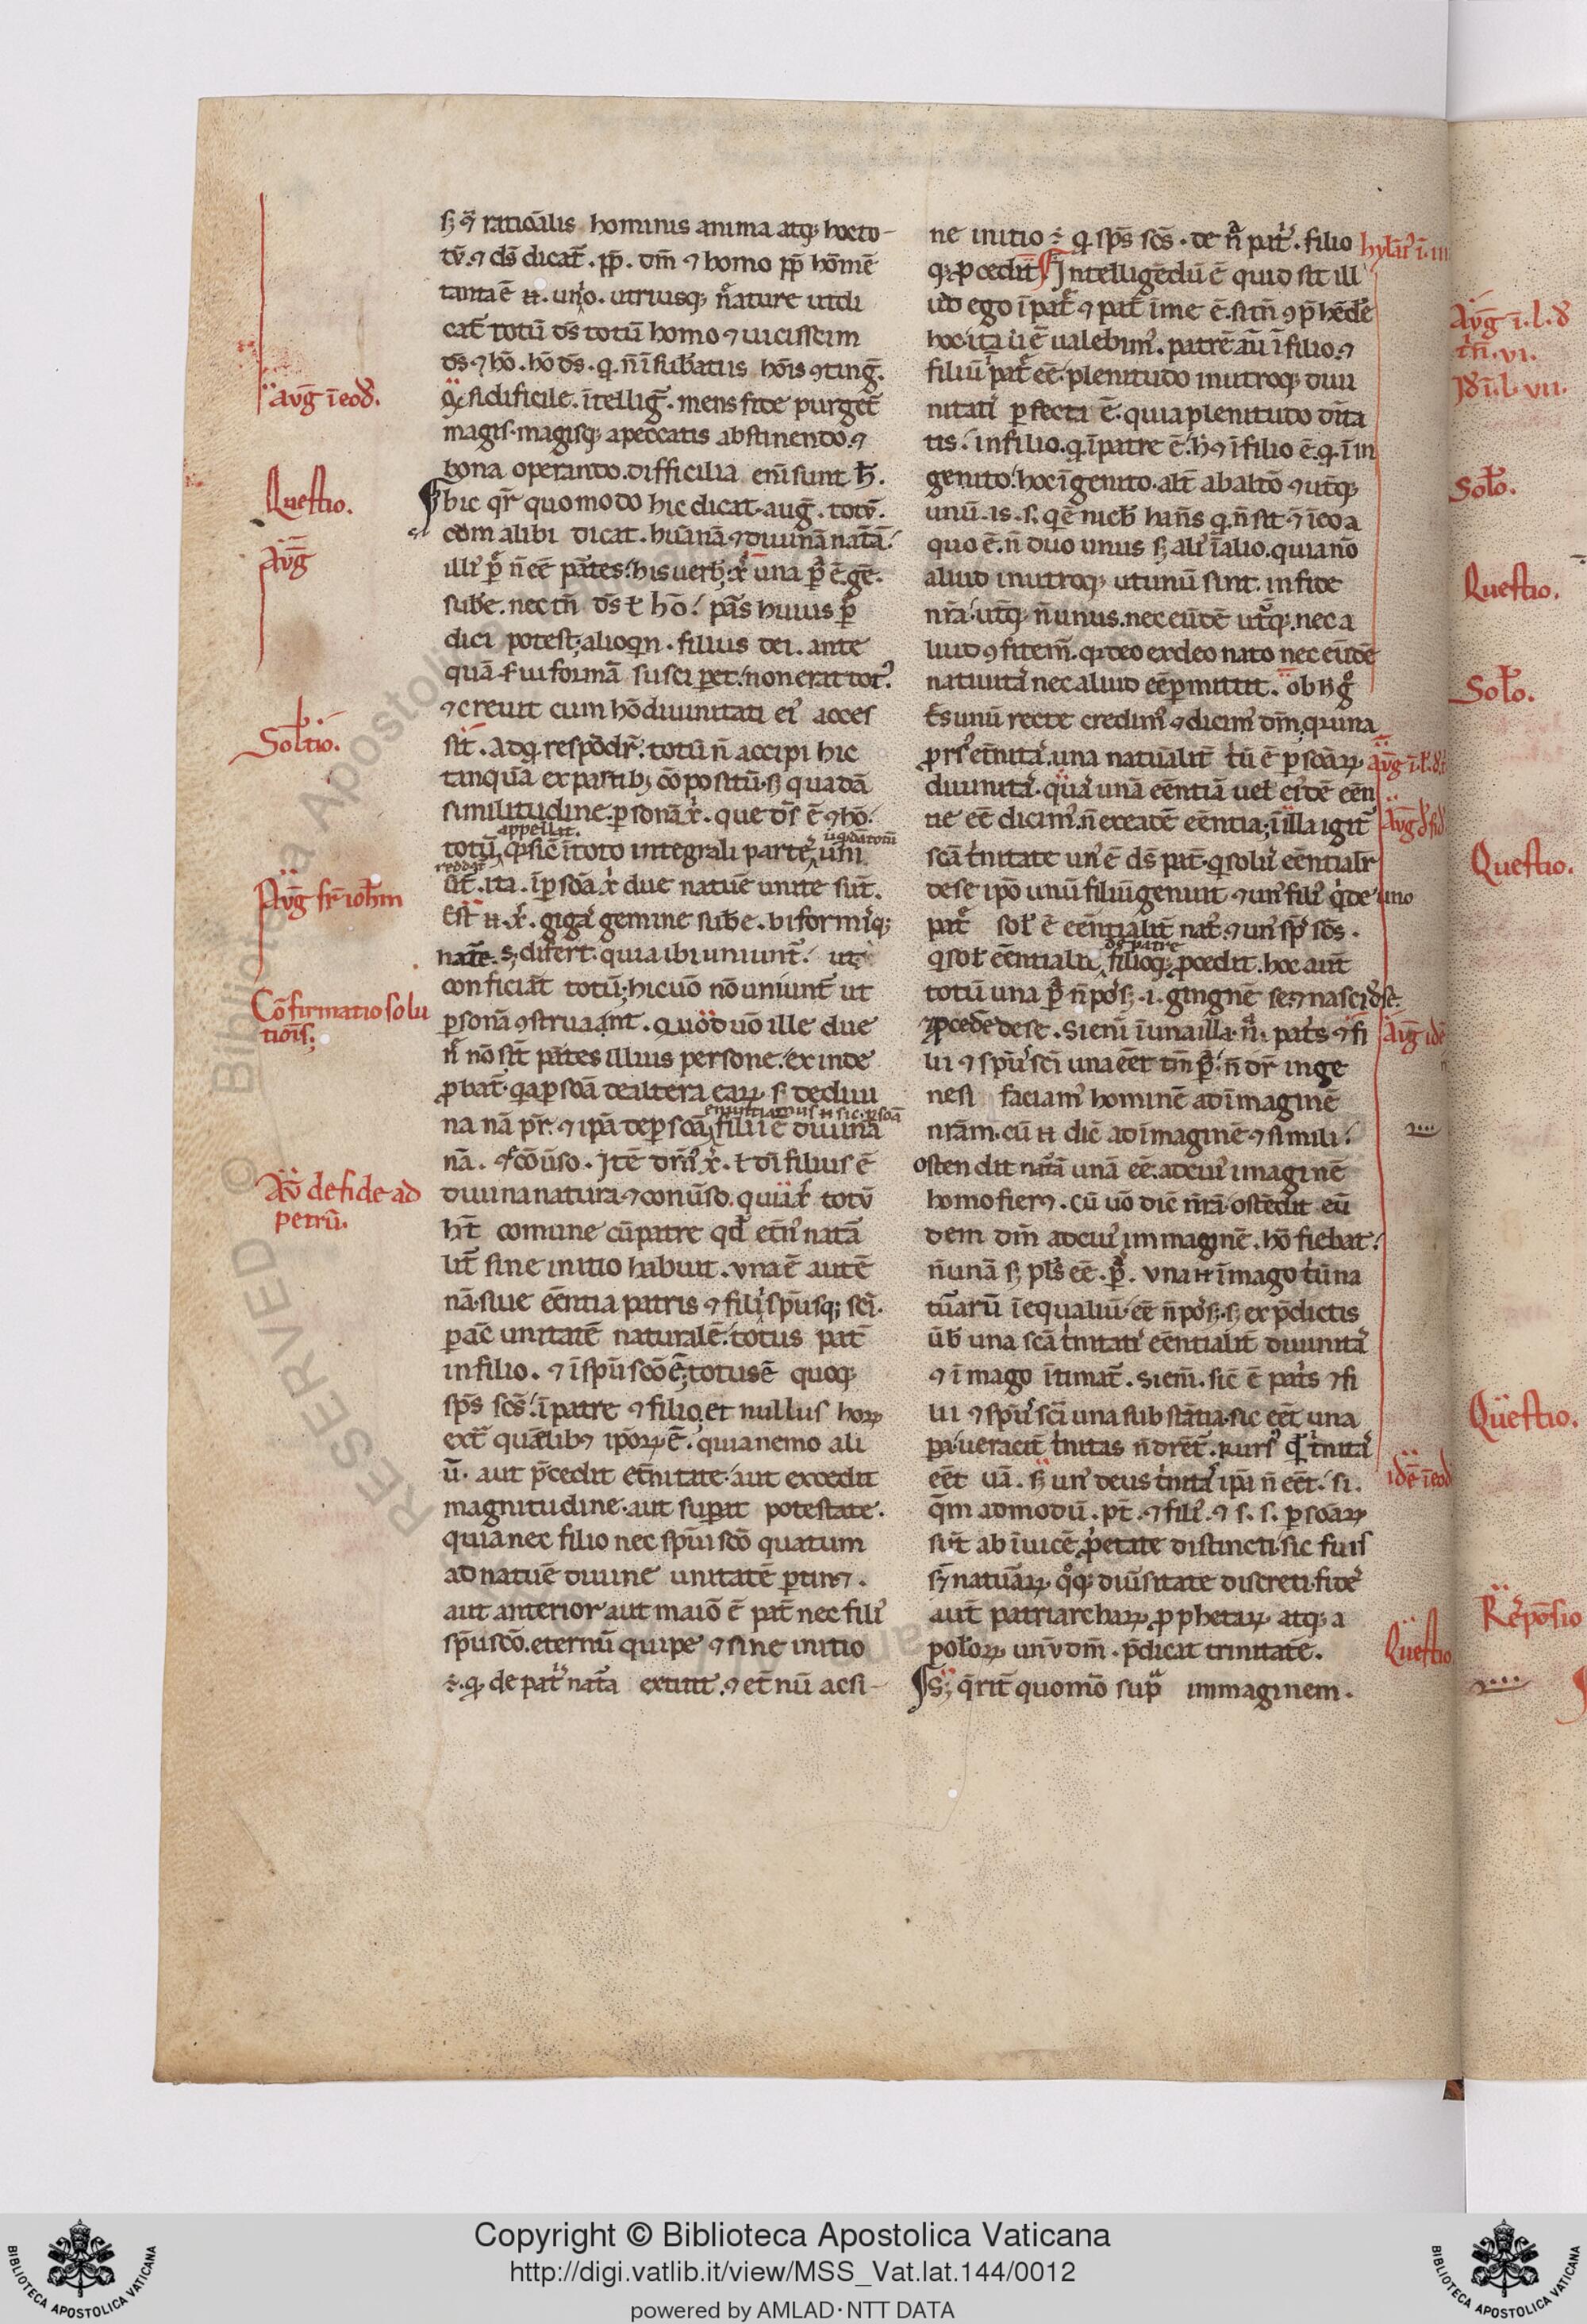 ſꝫ qͥ ratiōalis hominis anima atqꝫ hocto-
tū. ⁊ ds̄ dicat̄. ꝓp̄. om̄ ⁊ homo ꝓp̄ hōmē
tanta ē .n. unͥo. utriusqꝫ nature ut di
cat̄ totū ds̄ totū homo ⁊ uicissim
ds̄ ⁊ hō. hō ds̄. q̄. n̄ ī
qđ si dificile. ītelliḡ. mens fide purget̄
magis. magisqꝫ apeccatis abstinendo. ⁊
bona operando. difficilia enī sunt h̄.
hic qr̄ quomodo hic dicat. auḡ. totū.
cum alibi dicat. hūanā ⁊ diuinā natā.
illiꝰ ꝑ̄ n̄ eē ꝑtes. his uerbꝫ. xͥ una ꝑ̄ ē. gē.
sub̄e. nec tn̄ ds̄ ł hō. pās huius ꝑ̄
dici potest. alioqn. filius dei. ante
quā s̄ui formā susciperet. non erat totꝰ.
⁊ creuit cum hō diuinitati eiꝰ acces
sit. Adq̄ respōdr̄. totū n̄ accipi hic
tanquā ex partibꝫ cōpositū. sꝫ quadā
similitudine. ꝑsonā xͥ. que ds̄ ē ⁊ hō.
appellat.
totū. qꝛ sic̄ ītoto integrali parte unī
sit̄. ita. īꝑsōa xͥ due natūe unite sūt.
Est .n. xͥ. gigāꝰ gemine sub̄e. biformisqꝫ
natūe. sꝫ difert. quia ibi uniunt̄. ut
conficiāt totū. hic uō nō uniunt̄ ut
ꝑsonā ꝯstruant. Quod uō ille due
nͣ nō sīt ꝑtes illius persone. ex inde
ꝓbat̄. qa ꝑsōa de altera eaꝝ. s. de diui
na nā pr̄. ⁊ ipā de ꝑsōa filii ē diuina
nā. ⁊ ecōūso. Itē om̄ xͥ. ł dī filius ē
diuina natura ⁊ conūso. quia xͥ totū
ht̄ comune cū patre qđ et̄nꝰ natā
lit̄ sine initio habuit. vna ē autē
nā. siue eēntia patris ⁊ filii spūsqꝫ scī.
ꝓpāc unitatē naturalē. totus pat̄
in filio. ⁊ ī spū scō ē. totus ē quoqꝫ
sps̄ scs̄. ī patre ⁊ filio. et nullus hoꝝ
ext̄ quālibꝫ ipoꝝ ē. quia nemo ali
ū. aut p̄cedit et̄nitate. aut excedit
magnitudine. aut suꝑat potestate.
quia nec filio nec spūi scō quatum
ad natūe diuine unitatē ꝑtinꝫ.
aut anterior aut maiō ē pat̄ nec filiꝰ
spū scō. eternū quipe ⁊ sine initio
ē. q̄. de patͥs natā extitit. ⁊ et̄nū ac si-
ne initio ē. q̄ sps̄ scs̄. de nͣ patͥs. filio
qꝫ ꝓcedit Intelligēdū ē quid sit ill
ud ego ī pat̄ ⁊ pat̄ ī me ē. si tn̄ ꝯp̄hēde
hoc ita ut ē ualebimꝰ. patrē aū ī filio. ⁊
filiū ī pat̄ eē. plenitudo in utroqꝫ diui
nitatꝭ ꝑfecta ē. quia plenitudo dīta
tis. in filio. q̄ ī patre ē. h̄ ⁊ ī filio ē. q̄. ī in
genito. hoc ī genito. alt̄ ab altō ⁊ utqꝫ
unū. is. s. q̄ ē nich̄ hn̄s q̄. n̄ sit ⁊ ī eo a
quo ē. n̄ duo unus sꝫ aliꝰ ī alio. quia nō
aliud in utroqꝫ ut unū sint. in fide
nr̄a. utqꝫ n̄ unus. nec eūdē utqꝫ. nec a
liud ꝯfitem̄. qꝛ deo ex deo nato nec eūdē
natiuitaꝰ nec aliud eē ꝑmittit. ob h̄ gͦ
t̄s unū recte credimꝰ ⁊ dicimꝰ om̄. qꝛ una
ꝓrsꝰ et̄nitaꝰ. una natūalit̄ tū ē ꝑsōaꝝ.
diuinitaꝰ. quā unā eēntiā uel eiꝰdē eēn
tie eē dicimꝰ. n̄ ex eadē eēntia; ī illa igit̄
scā t̄nitate unꝰ ē ds̄ pat̄. q̄ solꝰ eēntialr̄
de se ipō unū filiū genuit ⁊ unꝰ filiꝰ q̄ de uno
pat̄ solꝰ ē eēntialit̄ natꝰ. ⁊ unꝰ sp̄ꝰ scs̄.
q̄ solꝰ eēntialit̄ filioqꝫ ꝓcedit. hoc aūt
de patre
totū una ꝑ̄ n̄ poꝰsꝫ. i. gingnē se. ⁊ nasci de se.
⁊ ꝓcedē de se. Si enī ī una illa. nͣ. patͥs ⁊ fi
lii ⁊ spūꝰ scī una eēt tm̄ ꝑ̄. n̄ dr̄ inge
nesi faciamꝰ hominē ad īmaginē
nrām. cū .n. dic̄ ad īmaginē ⁊ simili.
ostendit natā unā eē. ad cuiꝰ imaginē
homo fierꝫ. Cū uō dic̄ nr̄ā. ostēdit eū
dem om̄ ad cuiꝰ immaginē. hō fiebat.
n̄ unā sꝫ pl̄s eē. ꝑ̄. vna .n. īmago t̄ū na
tūarū īequaliū. eē n̄ poꝰsꝫ. sꝫ ex p̄dictis
ūb̄ una scā t̄nitatꝭ eēntialit̄ diuinitaꝰ
⁊ īmago ītimat̄. Si enī. sic̄ ē patͥs ⁊ fi
lii ⁊ spūꝰ scī una substātia. sic eēt una
ꝑ̄. ueracit̄ t̄nitas n̄ dret̄. Rursꝰ q̄ t̄nitaꝰ
eēt uā. sꝫ unꝰ deus t̄nitaꝰ ipā n̄ eēt. si.
q̄m admodū. pt̄. ⁊ filiꝰ. ⁊ s. s. ꝑsōaꝝ
sūt ab īuicē ꝓpetate distincti. sic fuis
sꝫ natūaꝝ. q̄qꝫ diūsitate discreti. fideꝰ
aūt patriarchaꝝ. ꝓphetaꝝ. atqꝫ a
posꝉoꝝ. unū om̄. p̄dicat trinitatē.
Sꝫ q̄rit̄ quomō supͣ immaginem.
auḡ ī eod̄.
Questio.
Auḡ
Solt̄io.
Auḡ sr̄ ioh̄m
Cōfirmatio solu
tiōīs;
Au̅ de fide ad
petrū.
hylāꝰ ī. iii
Auḡ idē
idē ī eod
Questio
Auḡ ī. l. 8
t̄n. vi.
Id̄ ī. l. vii.
Soł̄o.
Questio.
Soł̄o.
Questio.
Questio.
Rēpōsio
RESERVED © Biblioteca Apostolica Vaticana
Copyright © Biblioteca Apostolica Vaticana
http://digi.vatlib.it/view/MSS_Vat.lat.144/0012
powered by AMLAD·NTT DATA
BIBLIOTECA APOSTOLICA VATICANA
BIBLIOTECA APOSTOLICA VATICANA